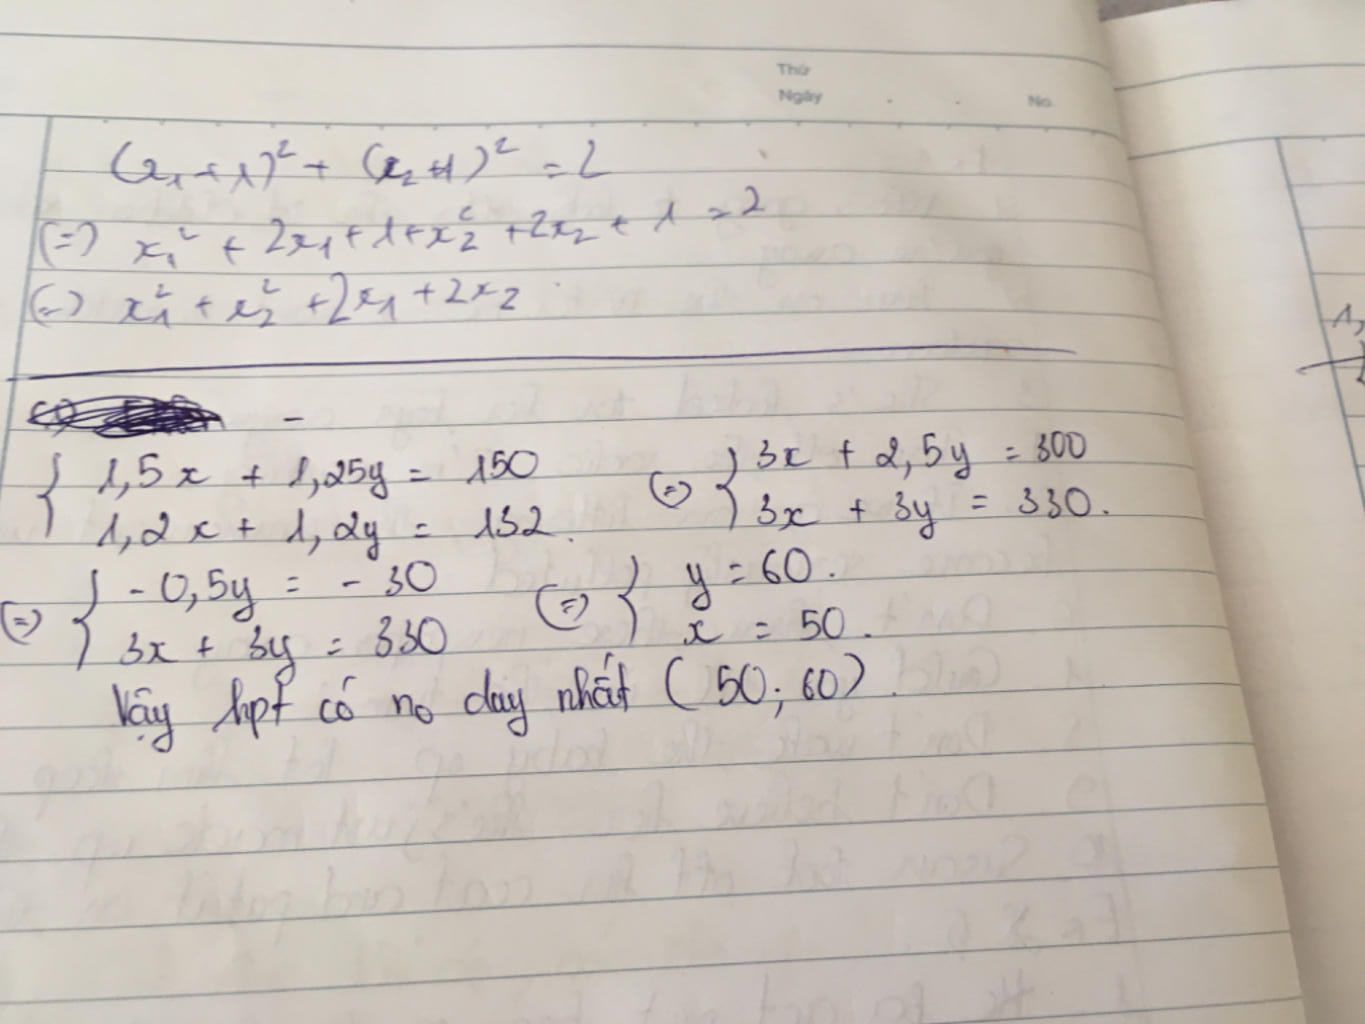 Thứ
Ngày No.
(x₁ + 1)² + (x₂ + 1)² = 2
(=) x₁² + 2x₁ + 1 + x₂² + 2x₂ + 1 = 2
(=) x₁² + x₂² + 2x₁ + 2x₂
{ 1,5x + 1,25y = 150 (=) { 3x + 2,5y = 300
1,2x + 1,2y = 132. 3x + 3y = 330.
(=) { -0,5y = -30 (=) { y = 60.
3x + 3y = 330 x = 50.
Vậy hpt có no day nhất (50; 60).